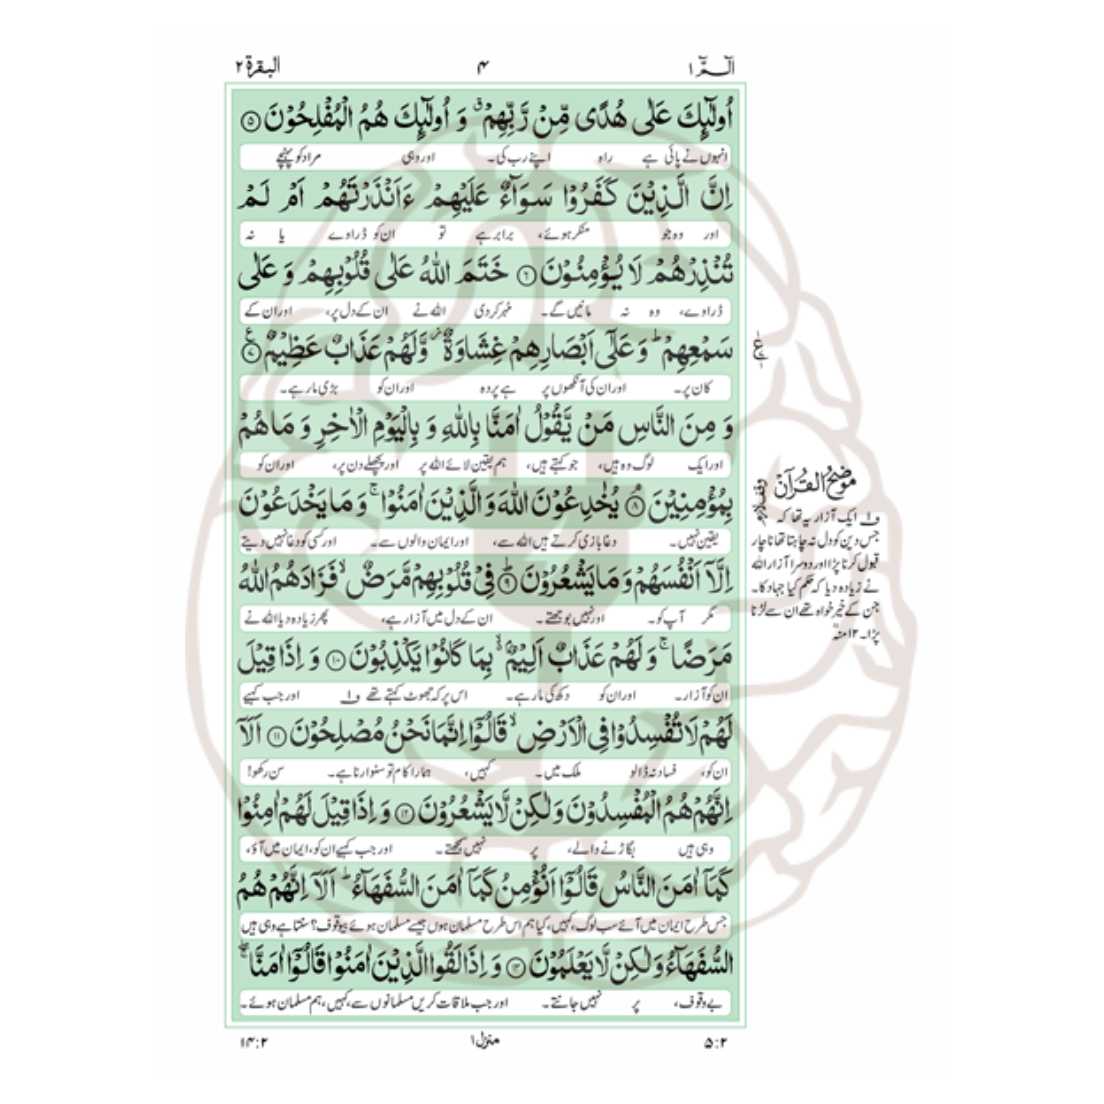 الٓمّٓ ۱
۴
البقرة ۲
اُولٰٓئِكَ عَلٰى هُدًى مِّنْ رَّبِّهِمْ ۗ وَ اُولٰٓئِكَ هُمُ الْمُفْلِحُوْنَ ۝۵
انہوں نے پائی ہے راہ اپنے رب کی۔ اور وہی مراد کو پہنچے
اِنَّ الَّذِيْنَ كَفَرُوْا سَوَآءٌ عَلَيْهِمْ ءَاَنْذَرْتَهُمْ اَمْ لَمْ
اور وہ جو منکر ہوئے، برابر ہے تو ان کو ڈراوے یا نہ
تُنْذِرْهُمْ لَا يُؤْمِنُوْنَ ۝۶ خَتَمَ اللّٰهُ عَلٰى قُلُوْبِهِمْ وَ عَلٰى
ڈراوے، وہ نہ مانیں گے۔ مہر کر دی اللہ نے ان کے دل پر، اور ان کے
سَمْعِهِمْ ؕ وَ عَلٰٓى اَبْصَارِهِمْ غِشَاوَةٌ ۫ وَّ لَهُمْ عَذَابٌ عَظِيْمٌ ۝۷ ع
کان پر۔ اور ان کی آنکھوں پر ہے پردہ اور ان کو بڑی مار ہے۔
وَ مِنَ النَّاسِ مَنْ يَّقُوْلُ اٰمَنَّا بِاللّٰهِ وَ بِالْيَوْمِ الْاٰخِرِ وَ مَا هُمْ
اور ایک لوگ وہ ہیں، جو کہتے ہیں، ہم یقین لائے اللہ پر اور پچھلے دن پر، اور ان کو
بِمُؤْمِنِيْنَ ۝۸ يُخٰدِعُوْنَ اللّٰهَ وَ الَّذِيْنَ اٰمَنُوْا ۚ وَ مَا يَخْدَعُوْنَ
یقین نہیں۔ دغا بازی کرتے ہیں اللہ سے، اور ایمان والوں سے۔ اور کسی کو دغا نہیں دیتے
اِلَّاۤ اَنْفُسَهُمْ وَ مَا يَشْعُرُوْنَ ۝۹ فِيْ قُلُوْبِهِمْ مَّرَضٌ ۙ فَزَادَهُمُ اللّٰهُ
مگر آپ کو۔ اور نہیں بوجھتے۔ ان کے دل میں آزار ہے، پھر زیادہ دیا اللہ نے
مَرَضًا ۚ وَ لَهُمْ عَذَابٌ اَلِيْمٌۢ ۙ بِمَا كَانُوْا يَكْذِبُوْنَ ۝۱۰ وَ اِذَا قِيْلَ
ان کو آزار۔ اور ان کو دکھ کی مار ہے۔ اس پر کہ جھوٹ کہتے تھے ف۱ اور جب کہیے
لَهُمْ لَا تُفْسِدُوْا فِى الْاَرْضِ ۙ قَالُوْۤا اِنَّمَا نَحْنُ مُصْلِحُوْنَ ۝۱۱ اَلَاۤ
ان کو، فساد نہ ڈالو ملک میں۔ کہیں، ہمارا کام تو سنوارنا ہے۔ سن رکھو!
اِنَّهُمْ هُمُ الْمُفْسِدُوْنَ وَ لٰكِنْ لَّا يَشْعُرُوْنَ ۝۱۲ وَ اِذَا قِيْلَ لَهُمْ اٰمِنُوْا
وہی ہیں بگاڑنے والے، پر نہیں سمجھتے۔ اور جب کہیے ان کو، ایمان میں آؤ،
كَمَاۤ اٰمَنَ النَّاسُ قَالُوْۤا اَنُؤْمِنُ كَمَاۤ اٰمَنَ السُّفَهَآءُ ؕ اَلَاۤ اِنَّهُمْ هُمُ
جس طرح ایمان میں آئے سب لوگ، کہیں، کیا ہم اس طرح مسلمان ہوں جیسے مسلمان ہوئے بیوقوف؟ سنتا ہے وہی ہیں
السُّفَهَآءُ وَ لٰكِنْ لَّا يَعْلَمُوْنَ ۝۱۳ وَ اِذَا لَقُوا الَّذِيْنَ اٰمَنُوْا قَالُوْۤا اٰمَنَّا ۖۚ
بے وقوف، پر نہیں جانتے۔ اور جب ملاقات کریں مسلمانوں سے، کہیں، ہم مسلمان ہوئے۔
ع
موضح القرآن
ف۱ ایک آزار یہ تھا کہ
جس دین کو دل نہ چاہتا تھا ناچار
قبول کرنا پڑا اور دوسرا آزار اللہ
نے زیادہ دیا کہ حکم کیا جہاد کا۔
جن کے خیر خواہ تھے ان سے لڑنا
پڑا۔ ۱۲ منہ
۵:۲
منزل ۱
۱۴:۲